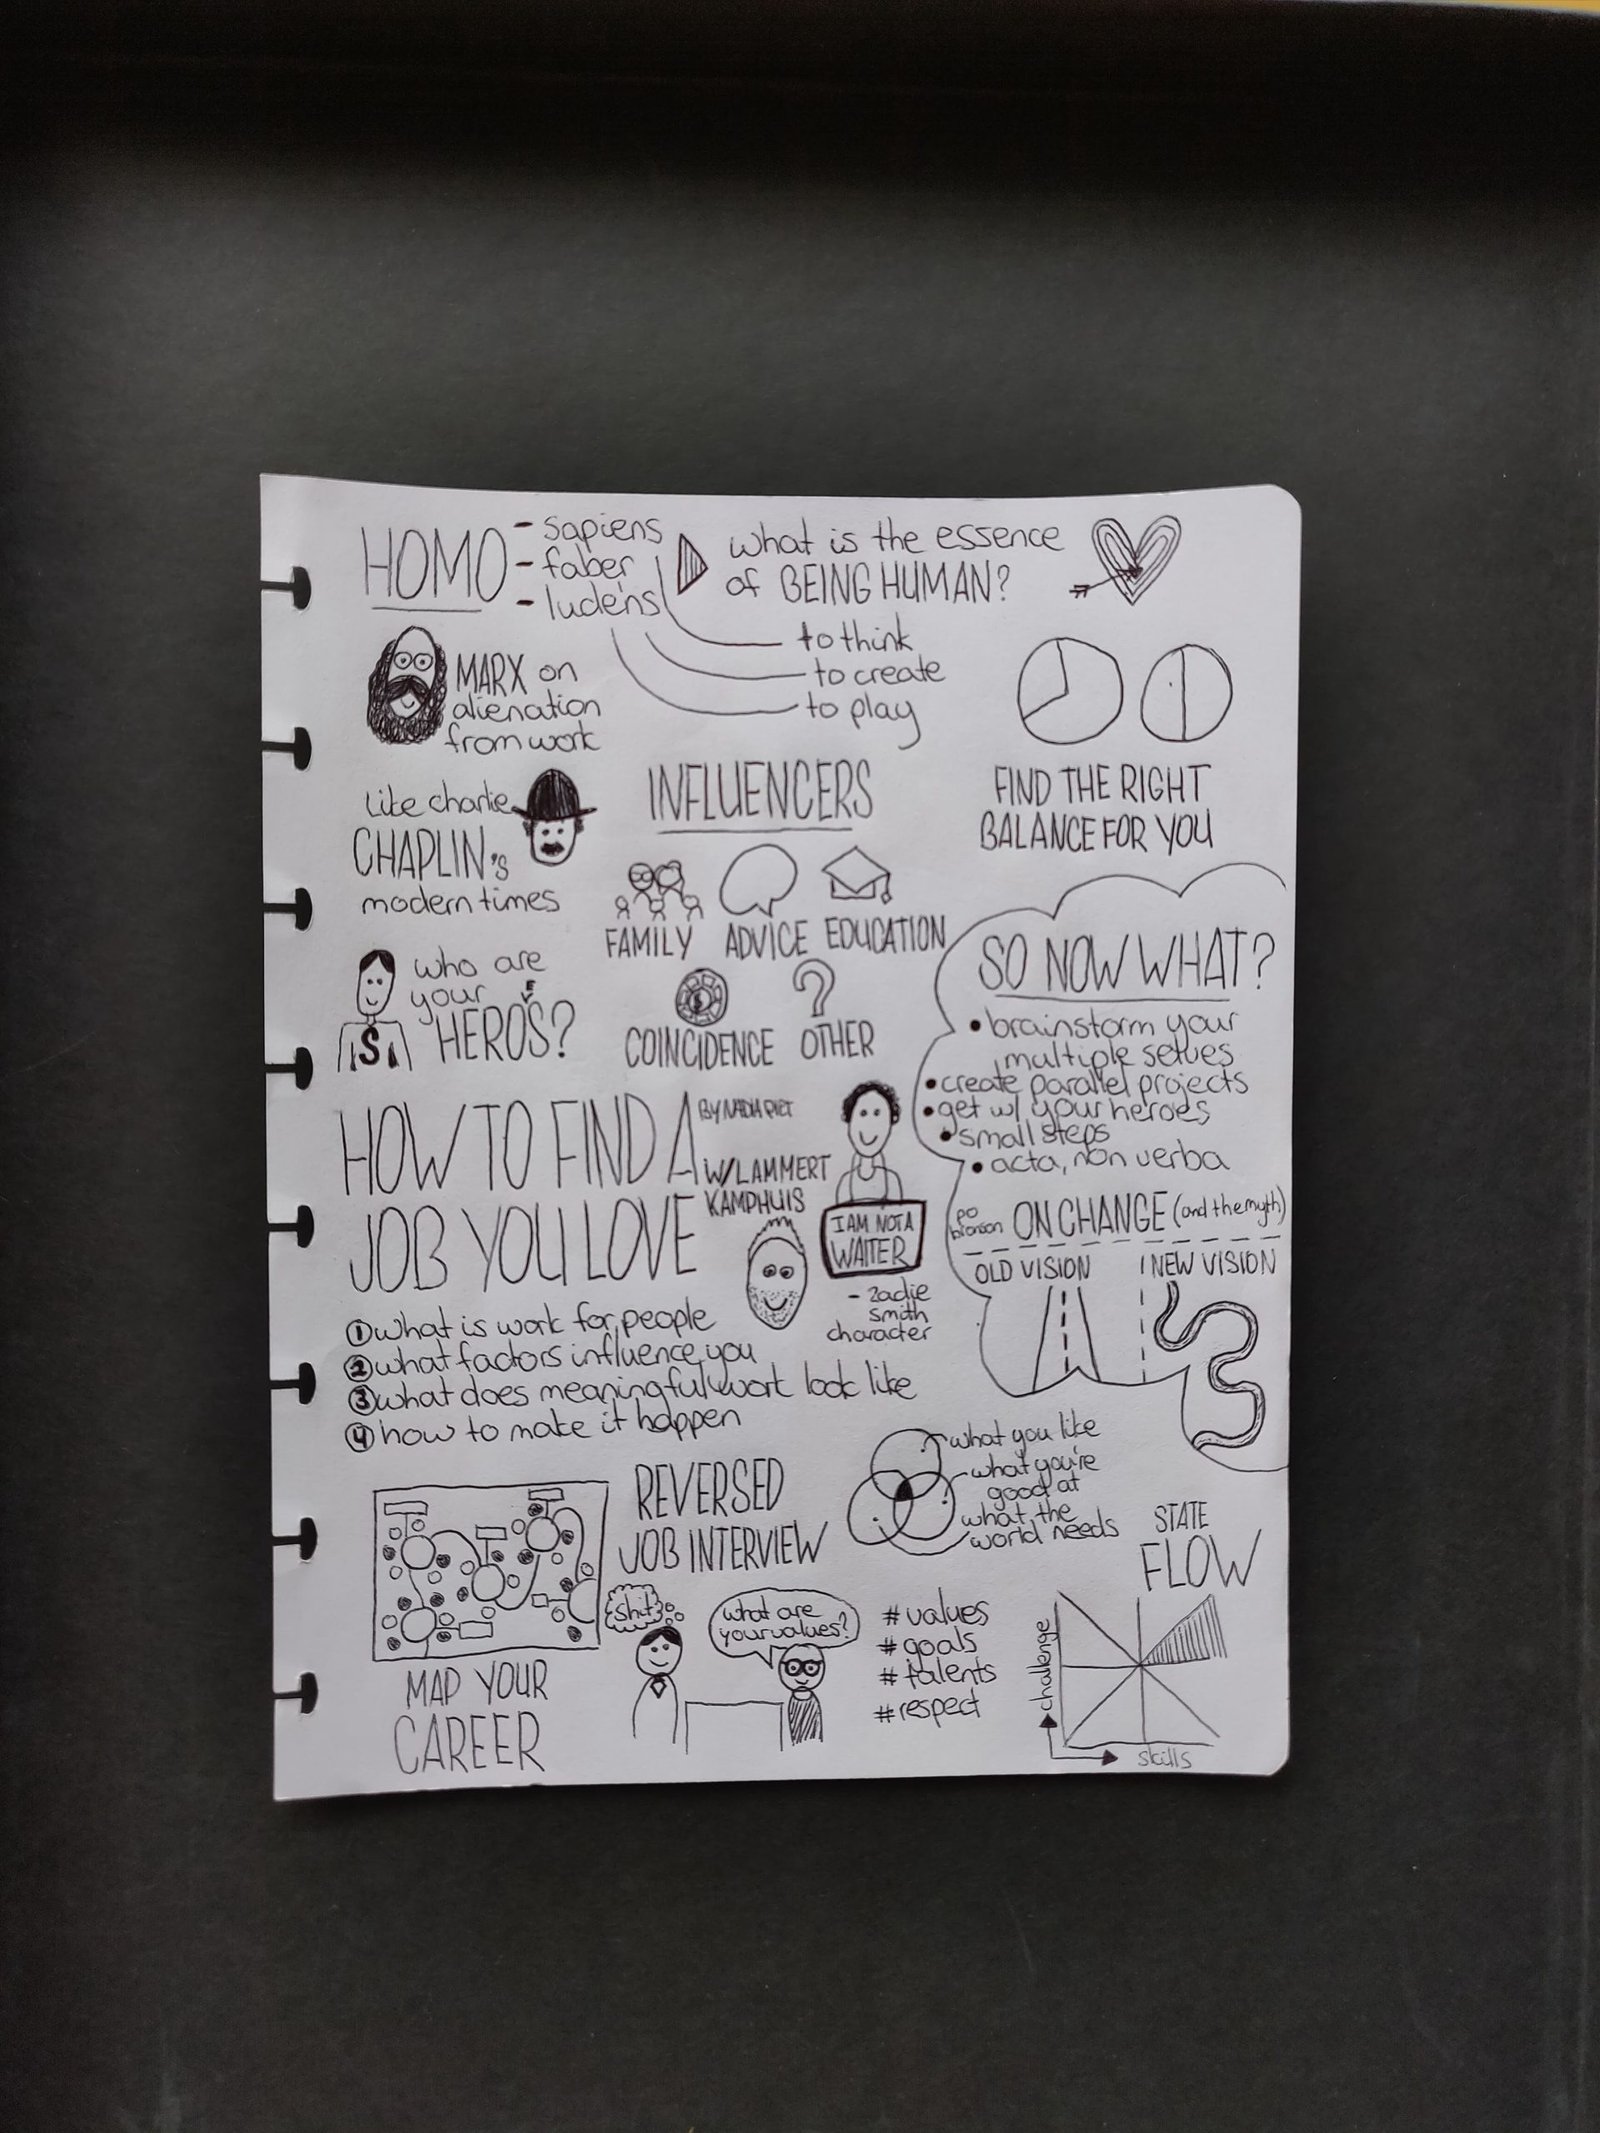 HOMO
- sapiens
- faber
- ludens
what is the essence
of BEING HUMAN?
to think
to create
to play
MARX on
alienation
from work
like charlie
CHAPLIN's
modern times
who are
your
HEROES?
INFLUENCERS
FAMILY
ADVICE
EDUCATION
COINCIDENCE
OTHER
FIND THE RIGHT
BALANCE FOR YOU
SO NOW WHAT?
• brainstorm your
multiple selves
• create parallel projects
• get w/ your heroes
• small steps
• acta, non verba
po
bronson
ON CHANGE (and the myth)
OLD VISION
NEW VISION
HOW TO FIND A
JOB YOU LOVE
BY NADIA PIET
W/ LAMMERT
KAMPHUIS
I AM NOT A
WAITER
- zadie
smith
character
1 what is work for people
2 what factors influence you
3 what does meaningful work look like
4 how to make it happen
MAP YOUR
CAREER
REVERSED
JOB INTERVIEW
shit!
what are
your values?
what you like
what you're
good at
what the
world needs
# values
# goals
# talents
# respect
STATE
FLOW
challenge
skills
S
$